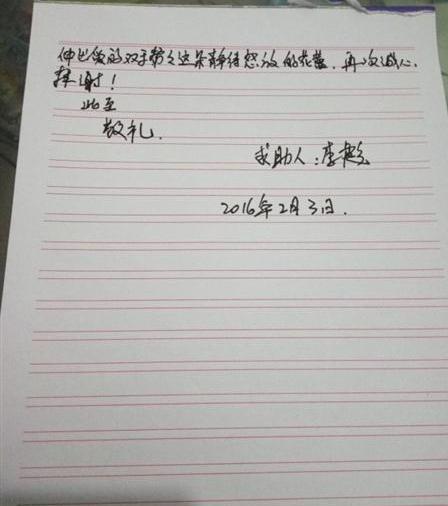 伸出爱的双手帮帮这朵静待您放的花蕾.再次诚心
拜谢!
此至
敬礼.
求助人:李
2016年2月3日.